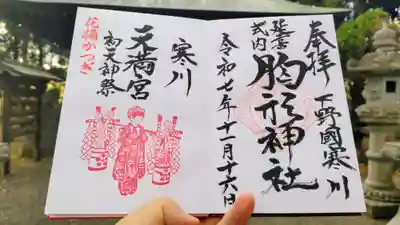 奉拝
下野國寒川
延喜式内
胸形神社
令和七年十一月十六日
寒川
天満宮
初天神祭
花桶かつぎ